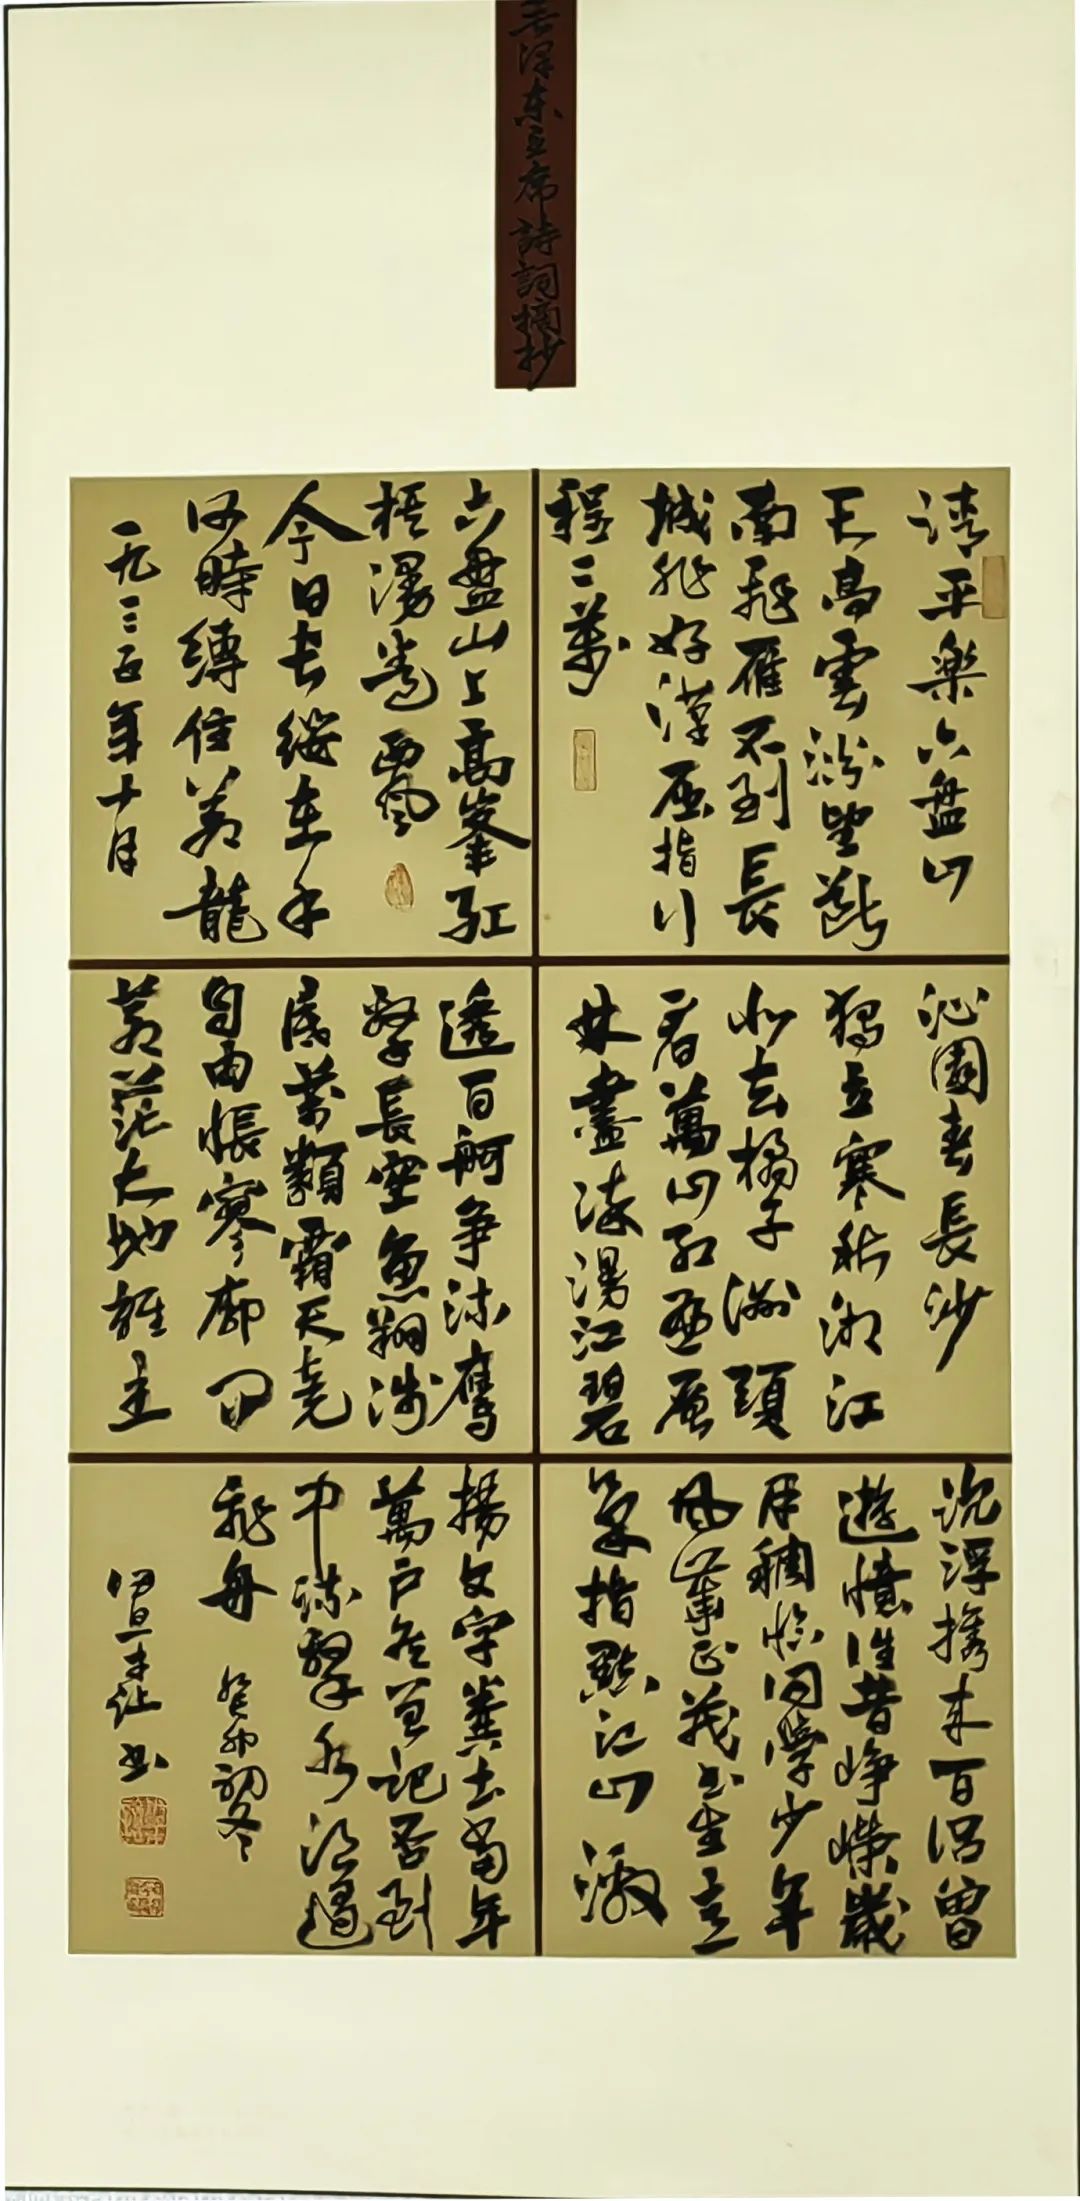 毛澤东主席詩詞摘抄
清平樂六盤山
天高雲淡望斷
南飛雁不到長
城非好漢屈指行
程二萬
六盤山上高峯紅
旗漫卷西風
今日长纓在手
何時縛住蒼龍
一九三五年十月
沁園春長沙
獨立寒秋湘江
北去橘子洲頭
看萬山红遍層
林盡染漫江碧
透百舸争流鷹
擊長空魚翔浅
底萬類霜天竞
自由悵寥廓问
蒼茫大地誰主
沉浮携来百侣曾
遊憶往昔峥嶸歲
月稠恰同學少年
風華正茂书生意
氣指點江山激
揚文字糞土當年
萬户侯曾記否到
中流擊水浪遏
飛舟 癸卯初冬
书